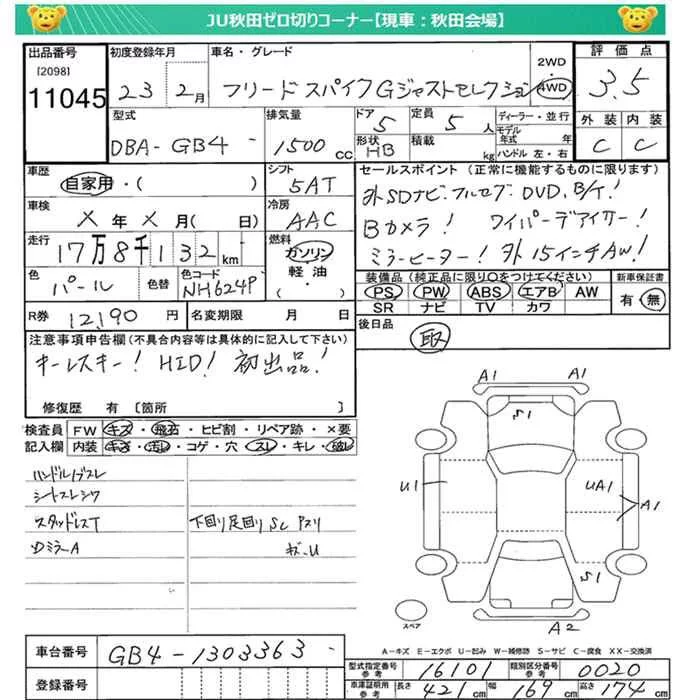 JU秋田ゼロ切りコーナー【現車：秋田会場】
出品番号 初度登録年月 車名・グレード 2WD 評価点
[2098]
11045 23 2月 フリードスパイクGジャストセレクション 4WD 3.5
型式 排気量 ドア 定員 ディーラー・並行 外装 内装
DBA-GB4 1500 cc 5 5人 モデル年式 年 C C
形状 積載 ハンドル 左・右
HB kg
車歴 シフト セールスポイント（正常に機能するものに限ります）
自家用・( ) 5AT 外SDナビ.フルセグ.DVD.B/T!
車検 冷房 Bカメラ! ワイパーデアイサー!
X年X月( 日) AAC ミラーヒーター! 外15インチAW!
走行 燃料
17万8千132km ガソリン
軽油
・( )
色 色替 色コード 装備品（純正品に限り○をつけてください） 新車保証書
パール NH624P PS PW ABS エアB AW 有・無
SR ナビ TV カワ
R券 12,190円 名変期限 月 日 後日品
取
注意事項申告欄（不具合内容等は具体的に記入して下さい）
キーレスキー! HID! 初出品!
修復歴 有 [箇所 ]
検査員 FW キズ・飛石・ヒビ割・リペア跡・×要
記入欄 内装 キズ・汚れ・コゲ・穴・スレ・キレ・破レ
ハンドル
シートスレシワ
スタッドレスT 下回り足回りSC
ミラーA キズ.U
A1 A1
S1
U1 UA1 A1
S1
A2
スペア
A－キズ E－エクボ U－凹み W－補修跡 S－サビ C－腐食 XX－交換済
車台番号 GB4-1303363
登録番号
型式指定番号 参考 16101 類別区分番号 参考 0020
車庫証明用 参考 長さ 421cm 幅 169cm 高さ 174cm